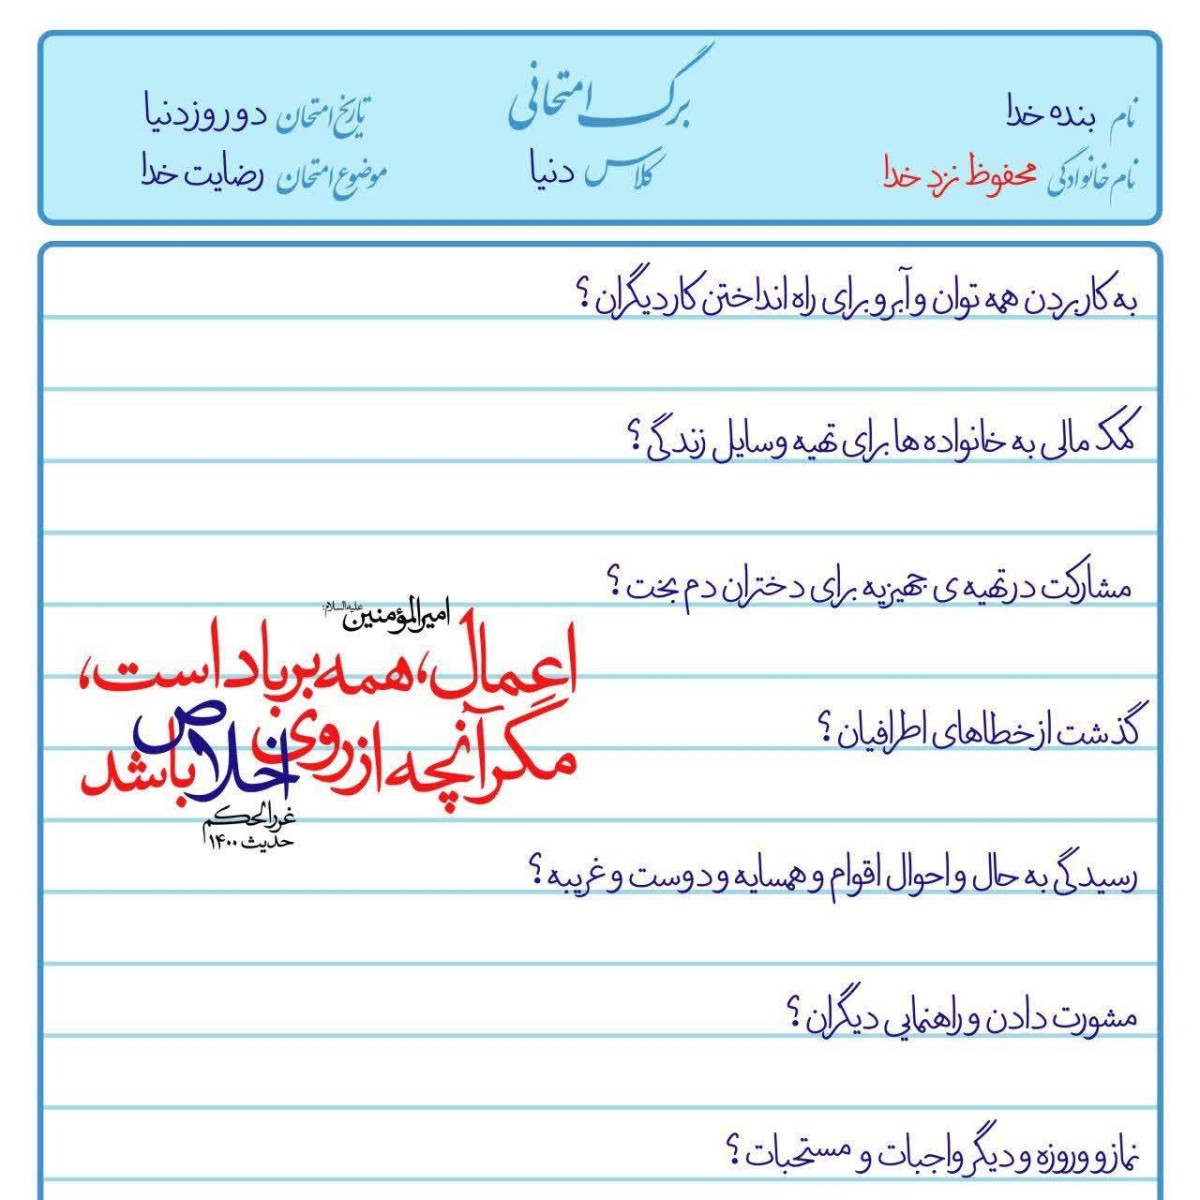 برگ امتحانی
نام بنده خدا
نام خانوادگی محفوظ نزد خدا
کلاس دنیا
تاریخ امتحان دو روز دنیا
موضوع امتحان رضایت خدا
به کار بردن همه توان و آبرو برای راه انداختن کار دیگران؟
کمک مالی به خانواده ها برای تهیه وسایل زندگی؟
مشارکت در تهیه ی جهیزیه برای دختران دم بخت؟
امیرالمؤمنین علیه‌السلام:
اعمال، همه بر باد است،
مگر آنچه از روی اخلاص باشد
غررالحکم
حدیث ۱۴۰۰
گذشت از خطاهای اطرافیان؟
رسیدگی به حال و احوال اقوام و همسایه و دوست و غریبه؟
مشورت دادن و راهنمایی دیگران؟
نماز و وروزه و دیگر واجبات و مستحبات؟